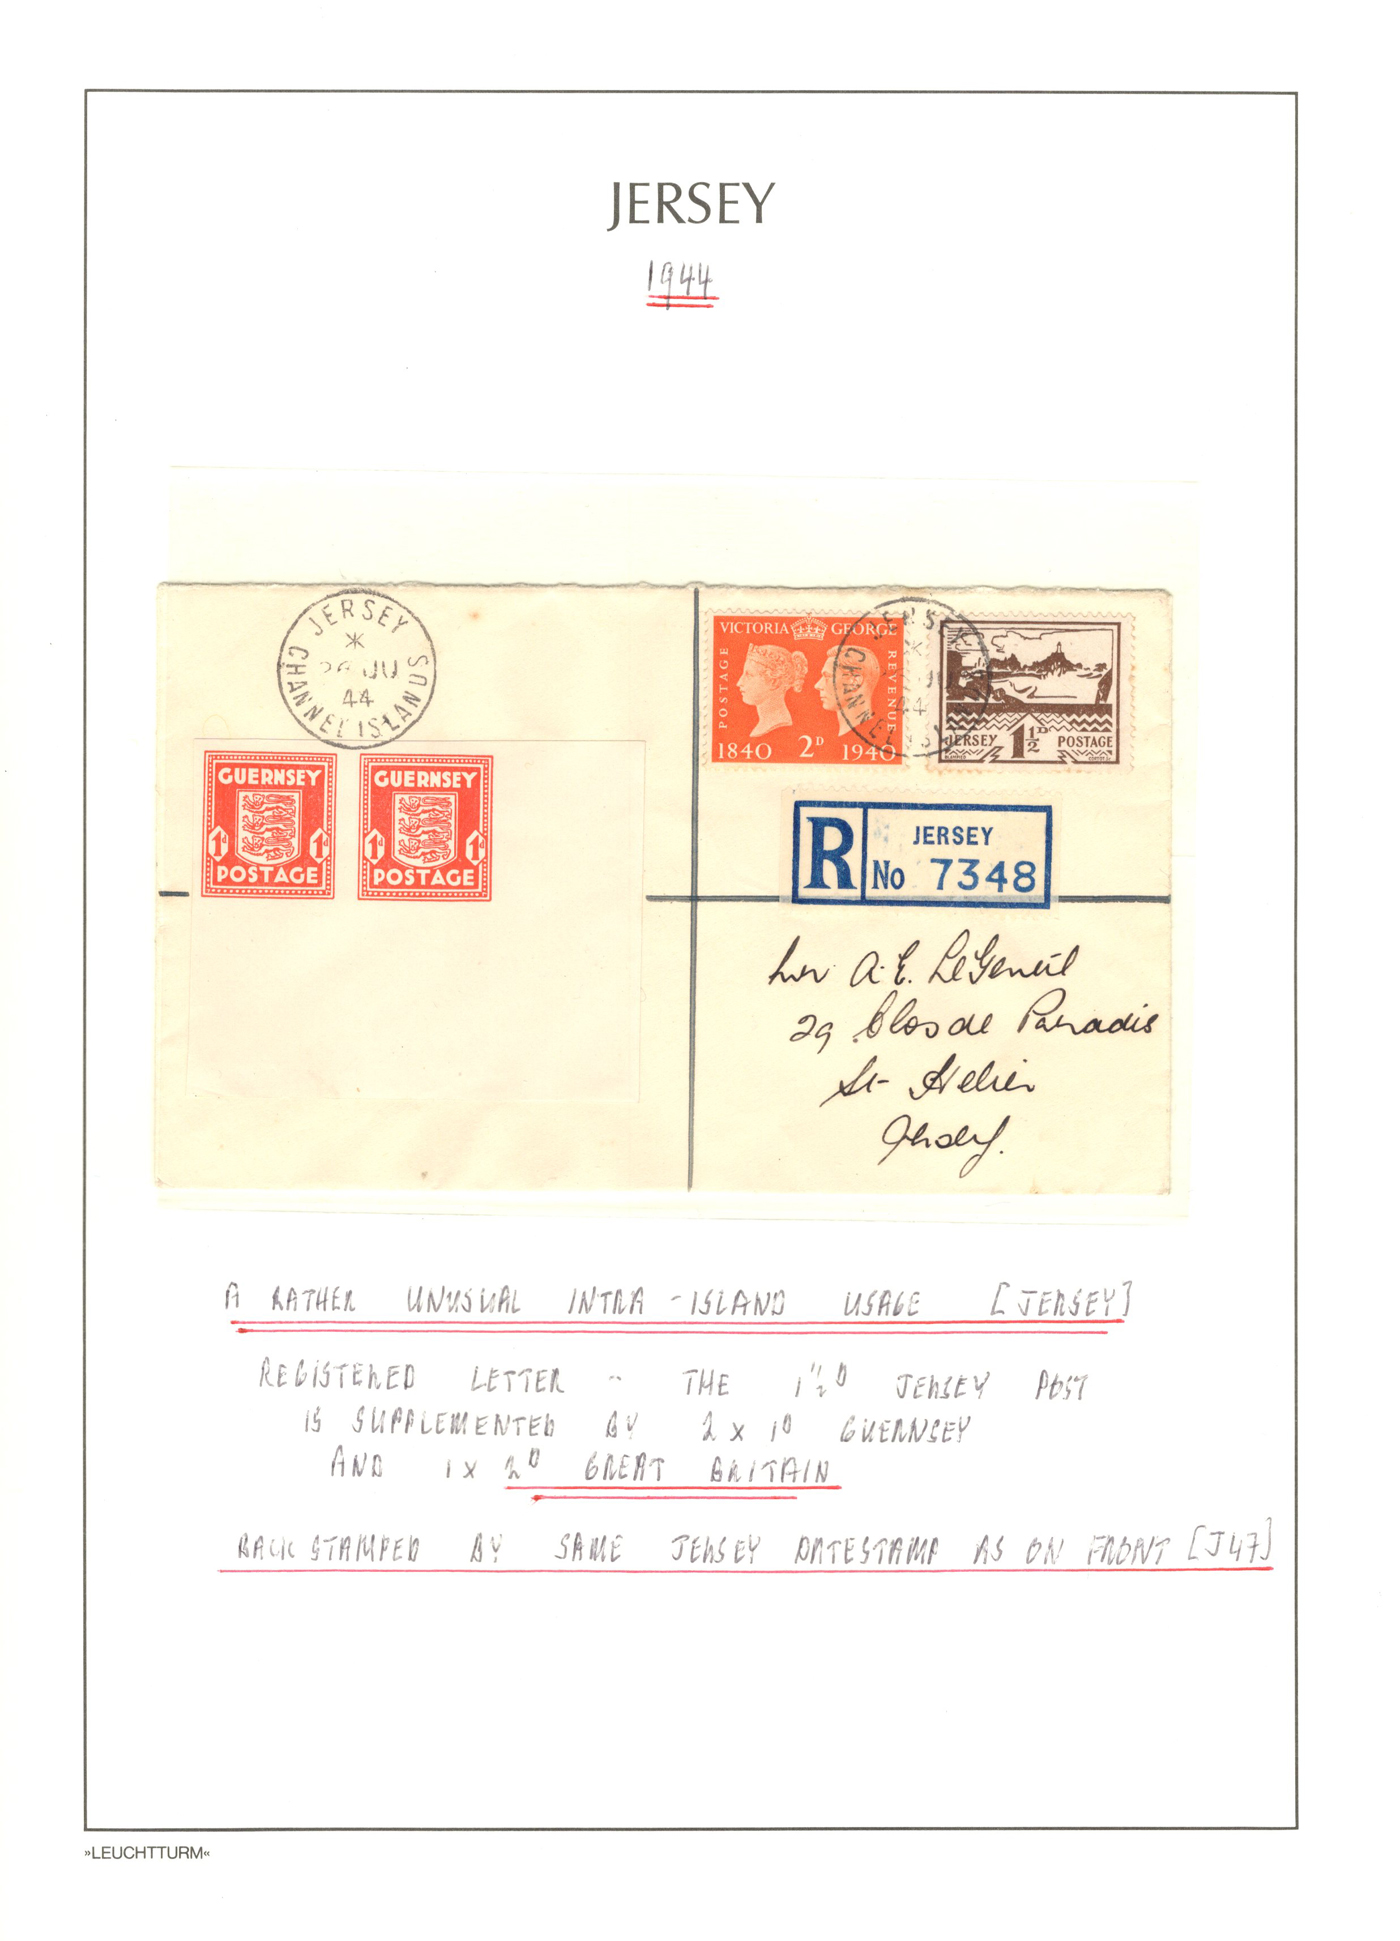 JERSEY
1944
JERSEY
26 JU
44
CHANNEL ISLANDS
VICTORIA GEORGE
POSTAGE
REVENUE
1840 2D 1940
JERSEY
JU
44
CHANNEL ISLANDS
JERSEY 1½D POSTAGE
GUERNSEY
1d 1d
POSTAGE
GUERNSEY
1d 1d
POSTAGE
R
JERSEY
No 7348
A.E. LeGeneúil
29 Clos de Paradis
St Helier
Jersey.
A RATHER UNUSUAL INTRA-ISLAND USAGE [JERSEY]
REGISTERED LETTER - THE 1½D JERSEY POST
IS SUPPLEMENTED BY 2 x 1D GUERNSEY
AND 1 x 2D GREAT BRITAIN
BACKSTAMPED BY SAME JERSEY DATESTAMP AS ON FRONT [J47]
»LEUCHTTURM«